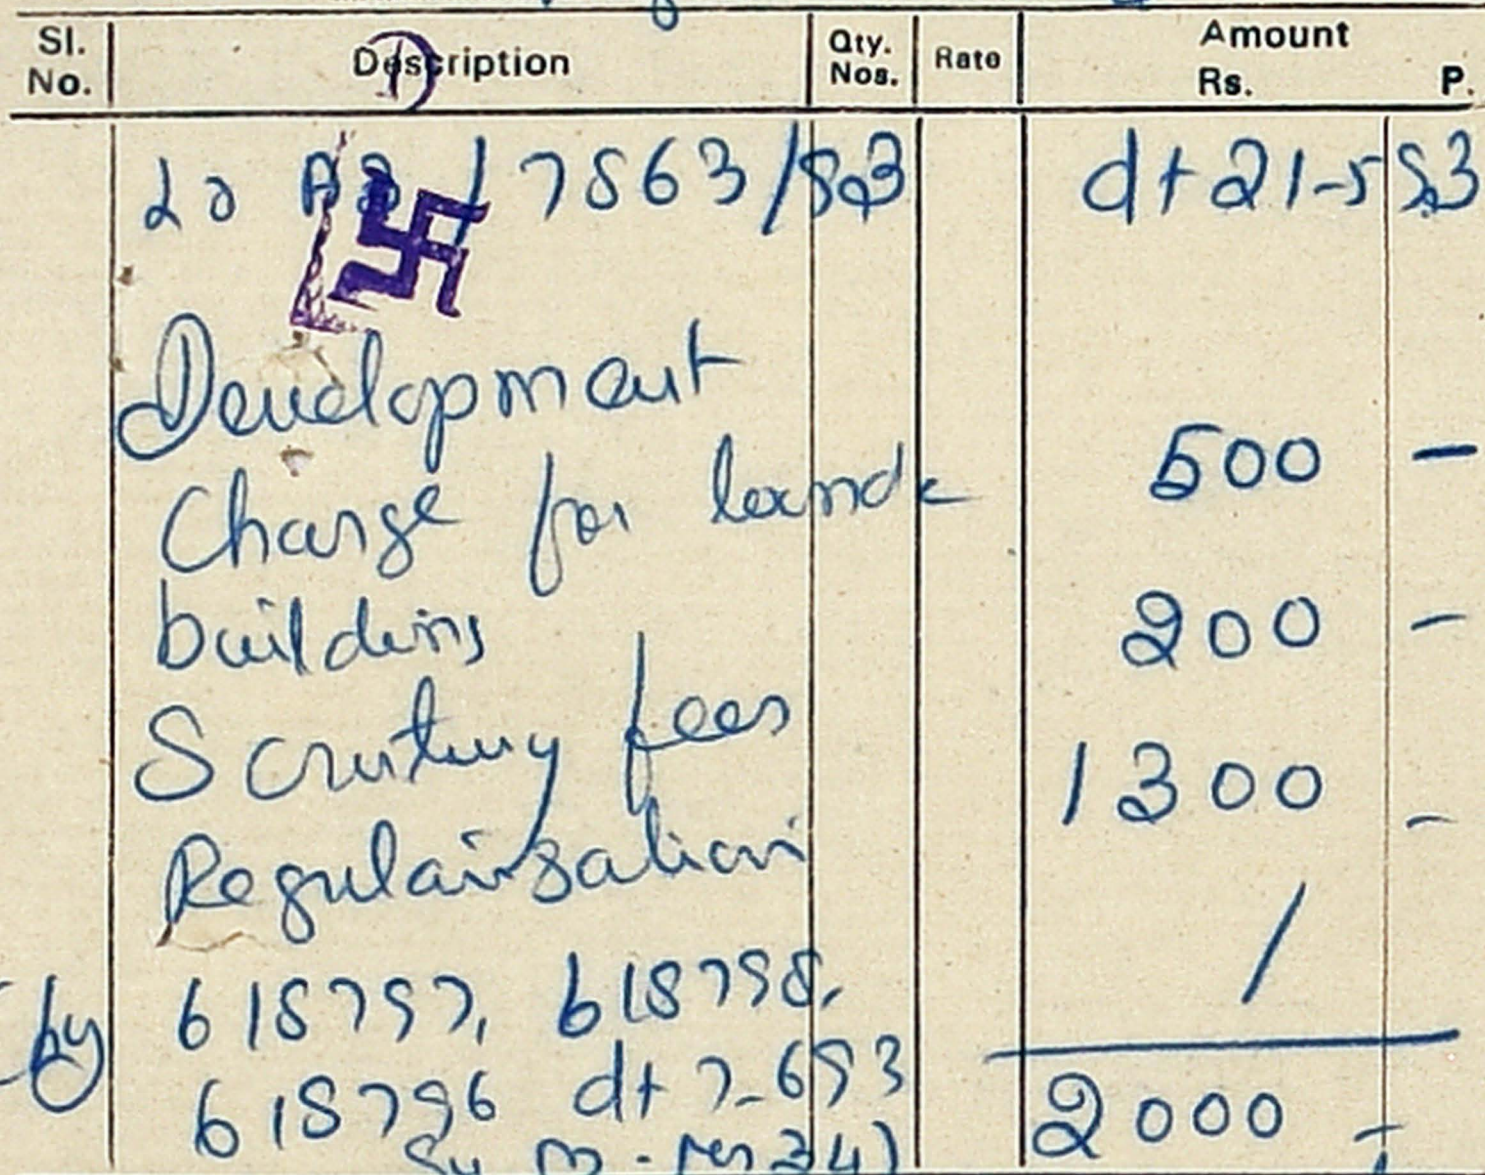 Sl. No. Description Qty. Nos. Rate Amount Rs. P.
7863/83 dt 21-5 83
Development
Charge for land & 500 -
building 200 -
Scrutiny fees 1300 -
Regularisation /
by 618797, 618798,
618796 dt 7-6 93 2000 -